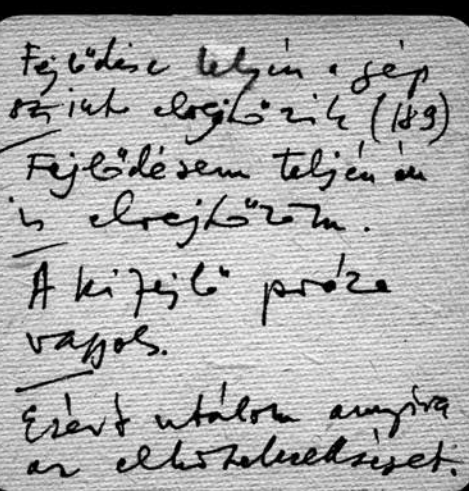 Fejlődése teljén a gép
szinte elrejtőzik (189)
Fejlődésem teljén én
is elrejtőzöm.
A kifejlő próza
vagyok.
Ezért utálom annyira
az elkötelezettséget.